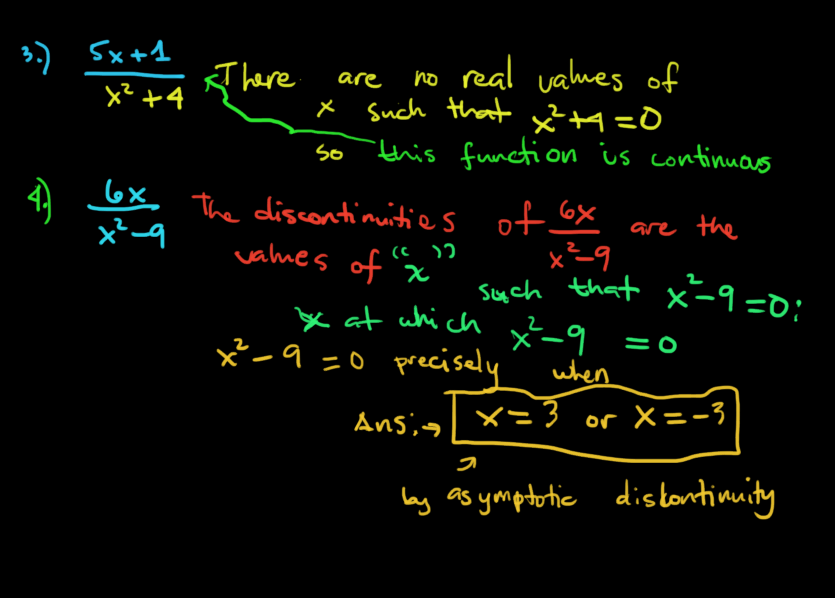 3.) 5x+1 / x²+4 There are no real values of
x such that x²+4=0
so this function is continuous
4.) 6x / x²-9 The discontinuities of 6x / x²-9 are the
values of "x"
such that x²-9=0:
x at which x²-9 =0
x²-9=0 precisely when
Ans:→ x=3 or x=-3
by asymptotic diskontinuity